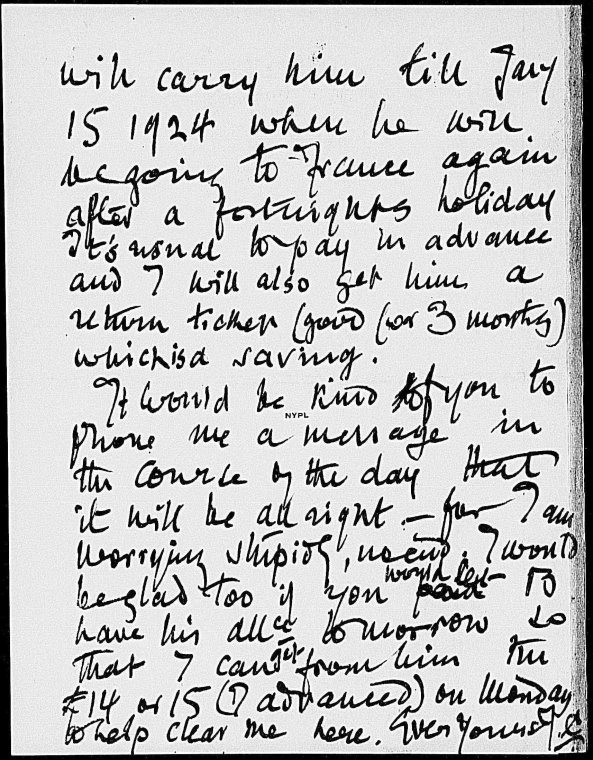 will carry him till Jany
15 1924 when he will
be going to France again
after a fortnights holiday
It's usual to pay in advance
and I will also get him a
return ticket (good for 3 months)
which is a saving.
It would be kind of you to
NYPL
phone me a message in
the course of the day that
it will be all right. — for I am
worrying stupidly, . I would
be glad too if you would let to
have his allce tomorrow so
that I can get from him the
£14 or 15 (I advanced) on Monday
to help clear me here. Ever yours